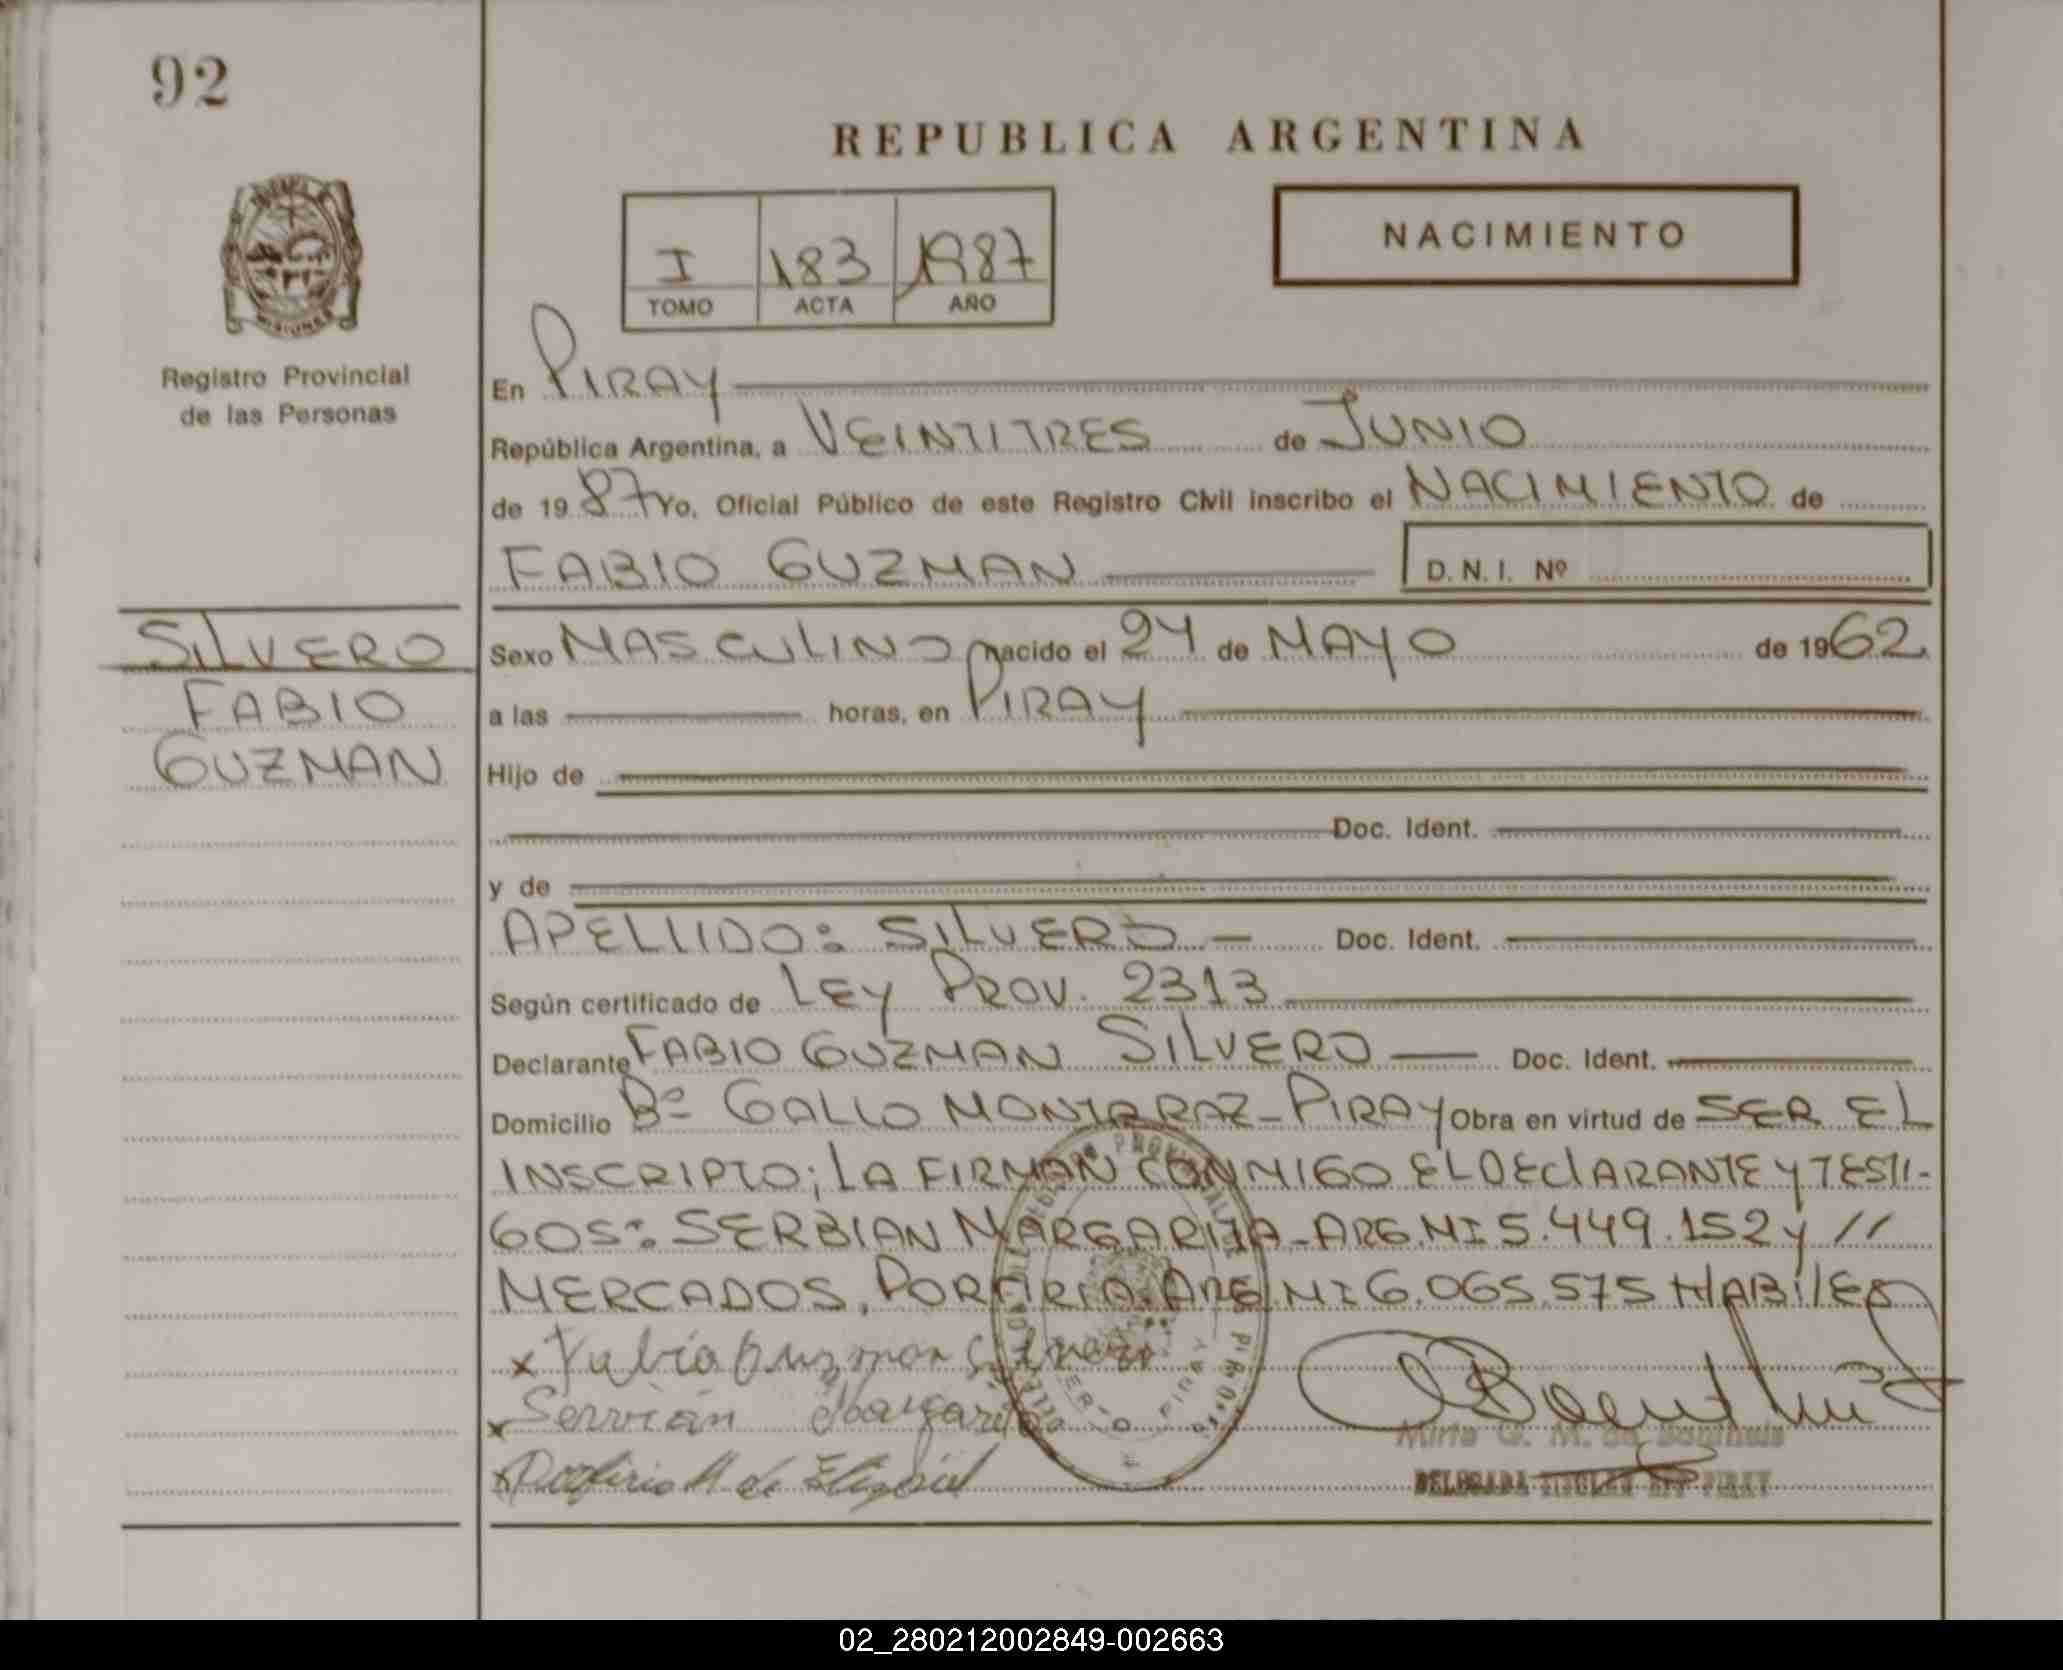 92
REPUBLICA ARGENTINA
I 183 1987
TOMO ACTA AÑO
NACIMIENTO
MISIONES
Registro Provincial
de las Personas
En PIRAY
República Argentina, a VEINTITRES de JUNIO
de 1987 Yo, Oficial Público de este Registro Civil inscribo el NACIMIENTO de
FABIO GUZMAN D.N.I. Nº
SILVERO
FABIO
GUZMAN
Sexo MASCULINO nacido el 24 de MAYO de 1962
a las horas, en PIRAY
Hijo de
Doc. Ident.
y de
APELLIDO: SILVERO — Doc. Ident.
Según certificado de LEY PROV. 2313
Declarante FABIO GUZMAN SILVERO — Doc. Ident.
Domicilio Bº GALLO MONTARRAZ - PIRAY Obra en virtud de SER EL
INSCRIPTO; LA FIRMAN CONMIGO EL DEClARANTE y TESTI-
GOS: SERBIAN MARGARITA - ARG. MI 5.449.152 y //
MERCADOS, PORFIRIA. ARG. MI 6.065.575 HABILES
x Fabio Guzman Silvero
x Servián Margarita
x Porfiria M de
Mirta G. M. de
DELEGADA TITULAR PIRAY
02_280212002849-002663